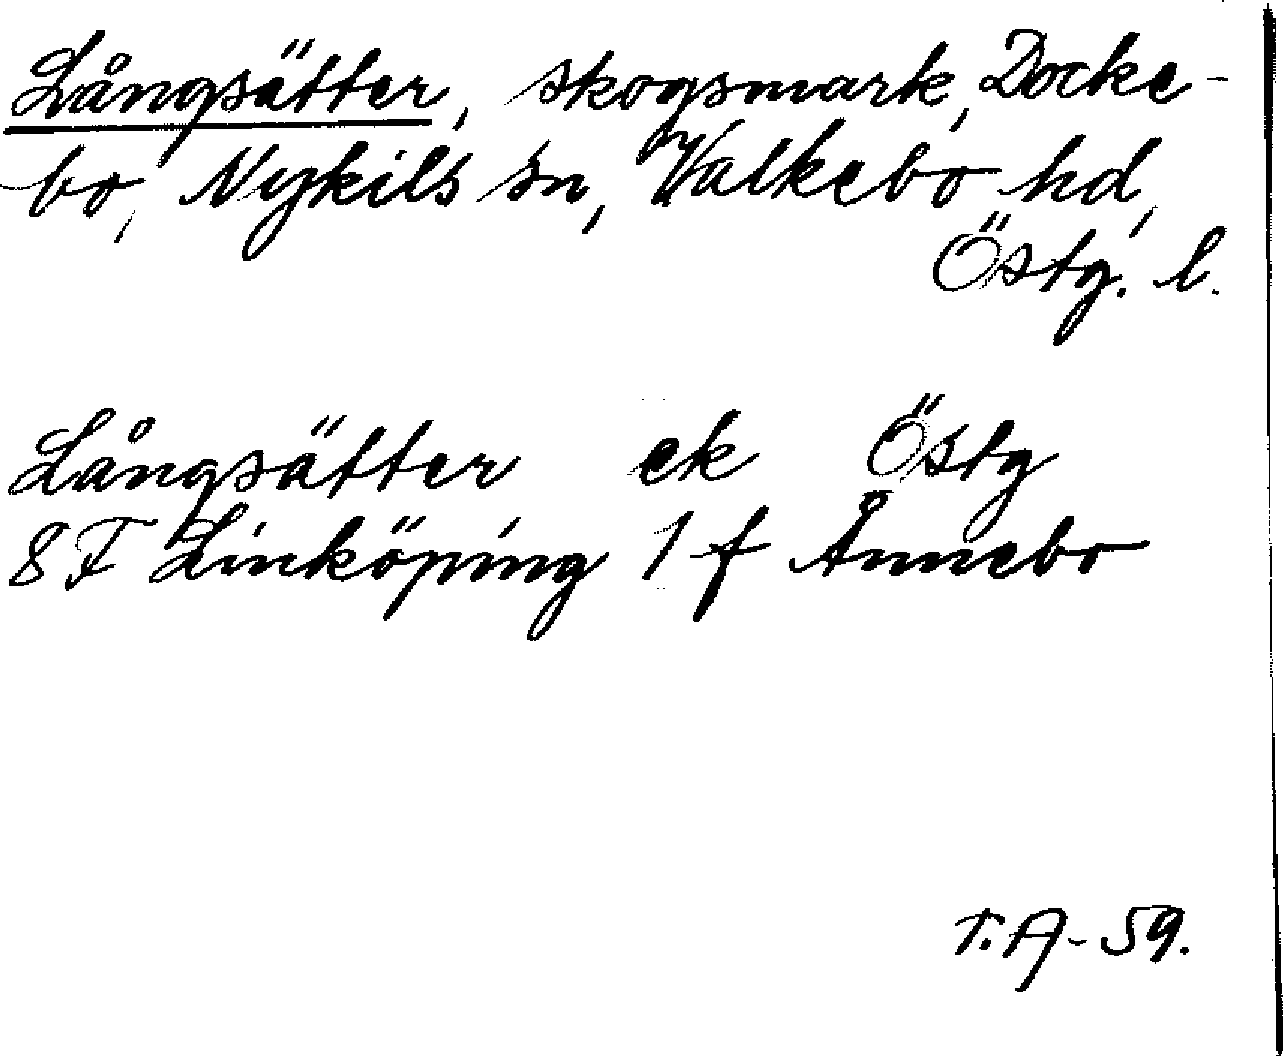 Långsätter, skogsmark, Docke-
bo, Nykils sn, Valkebo hd,
Östg. l.
Långsätter ek Östg
8F Linköping 1 f Ånnebo
T.A-59.